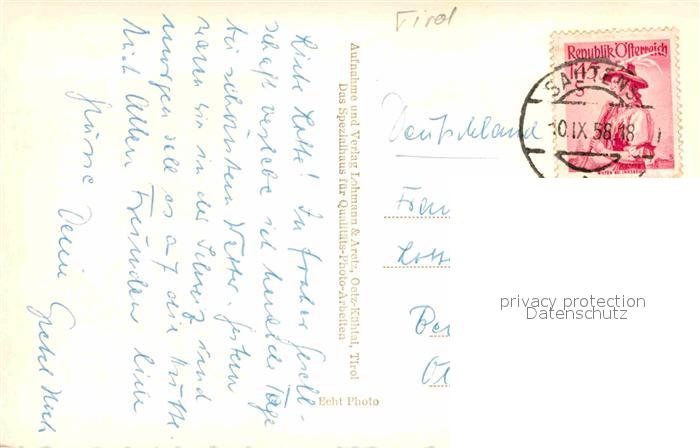 Liebe Lotte! In froher Gesell-
schaft verlebe ich herrliche Tage
bei schönstem Wetter. Gestern
waren wir in der Schweiz und
morgen soll es auf die Hütte.
Mit lieben Freunden liebe
Grüsse Deine Gretel
Aufnahme und Verlag Lohmann & Aretz, Oetz-Kühtai, Tirol
Das Spezialhaus für Qualitäts-Photo-Arbeiten
Echt Photo
Tirol
Republik Österreich
1.45
S
SAUTENS
10.IX.58.18
Deutschland
Frau
Lotte
privacy protection
Datenschutz